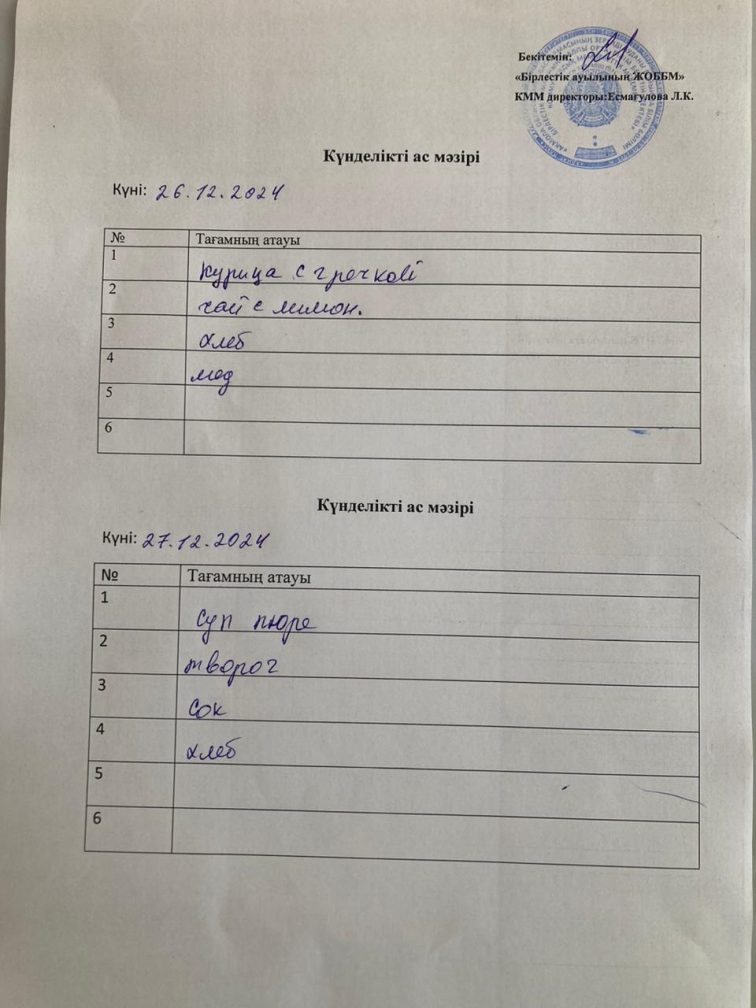 Бекітемін:
«Бірлестік ауылының ЖОББМ»
КММ директоры:Есмагулова Л.К.
Күнделікті ас мәзірі
Күні: 26.12.2024
№ Тағамның атауы
1 курица с гречкой
2 чай с лимон.
3 хлеб
4 мед
5
6
Күнделікті ас мәзірі
Күні: 27.12.2024
№ Тағамның атауы
1 суп пюре
2 творог
3 сок
4 хлеб
5
6